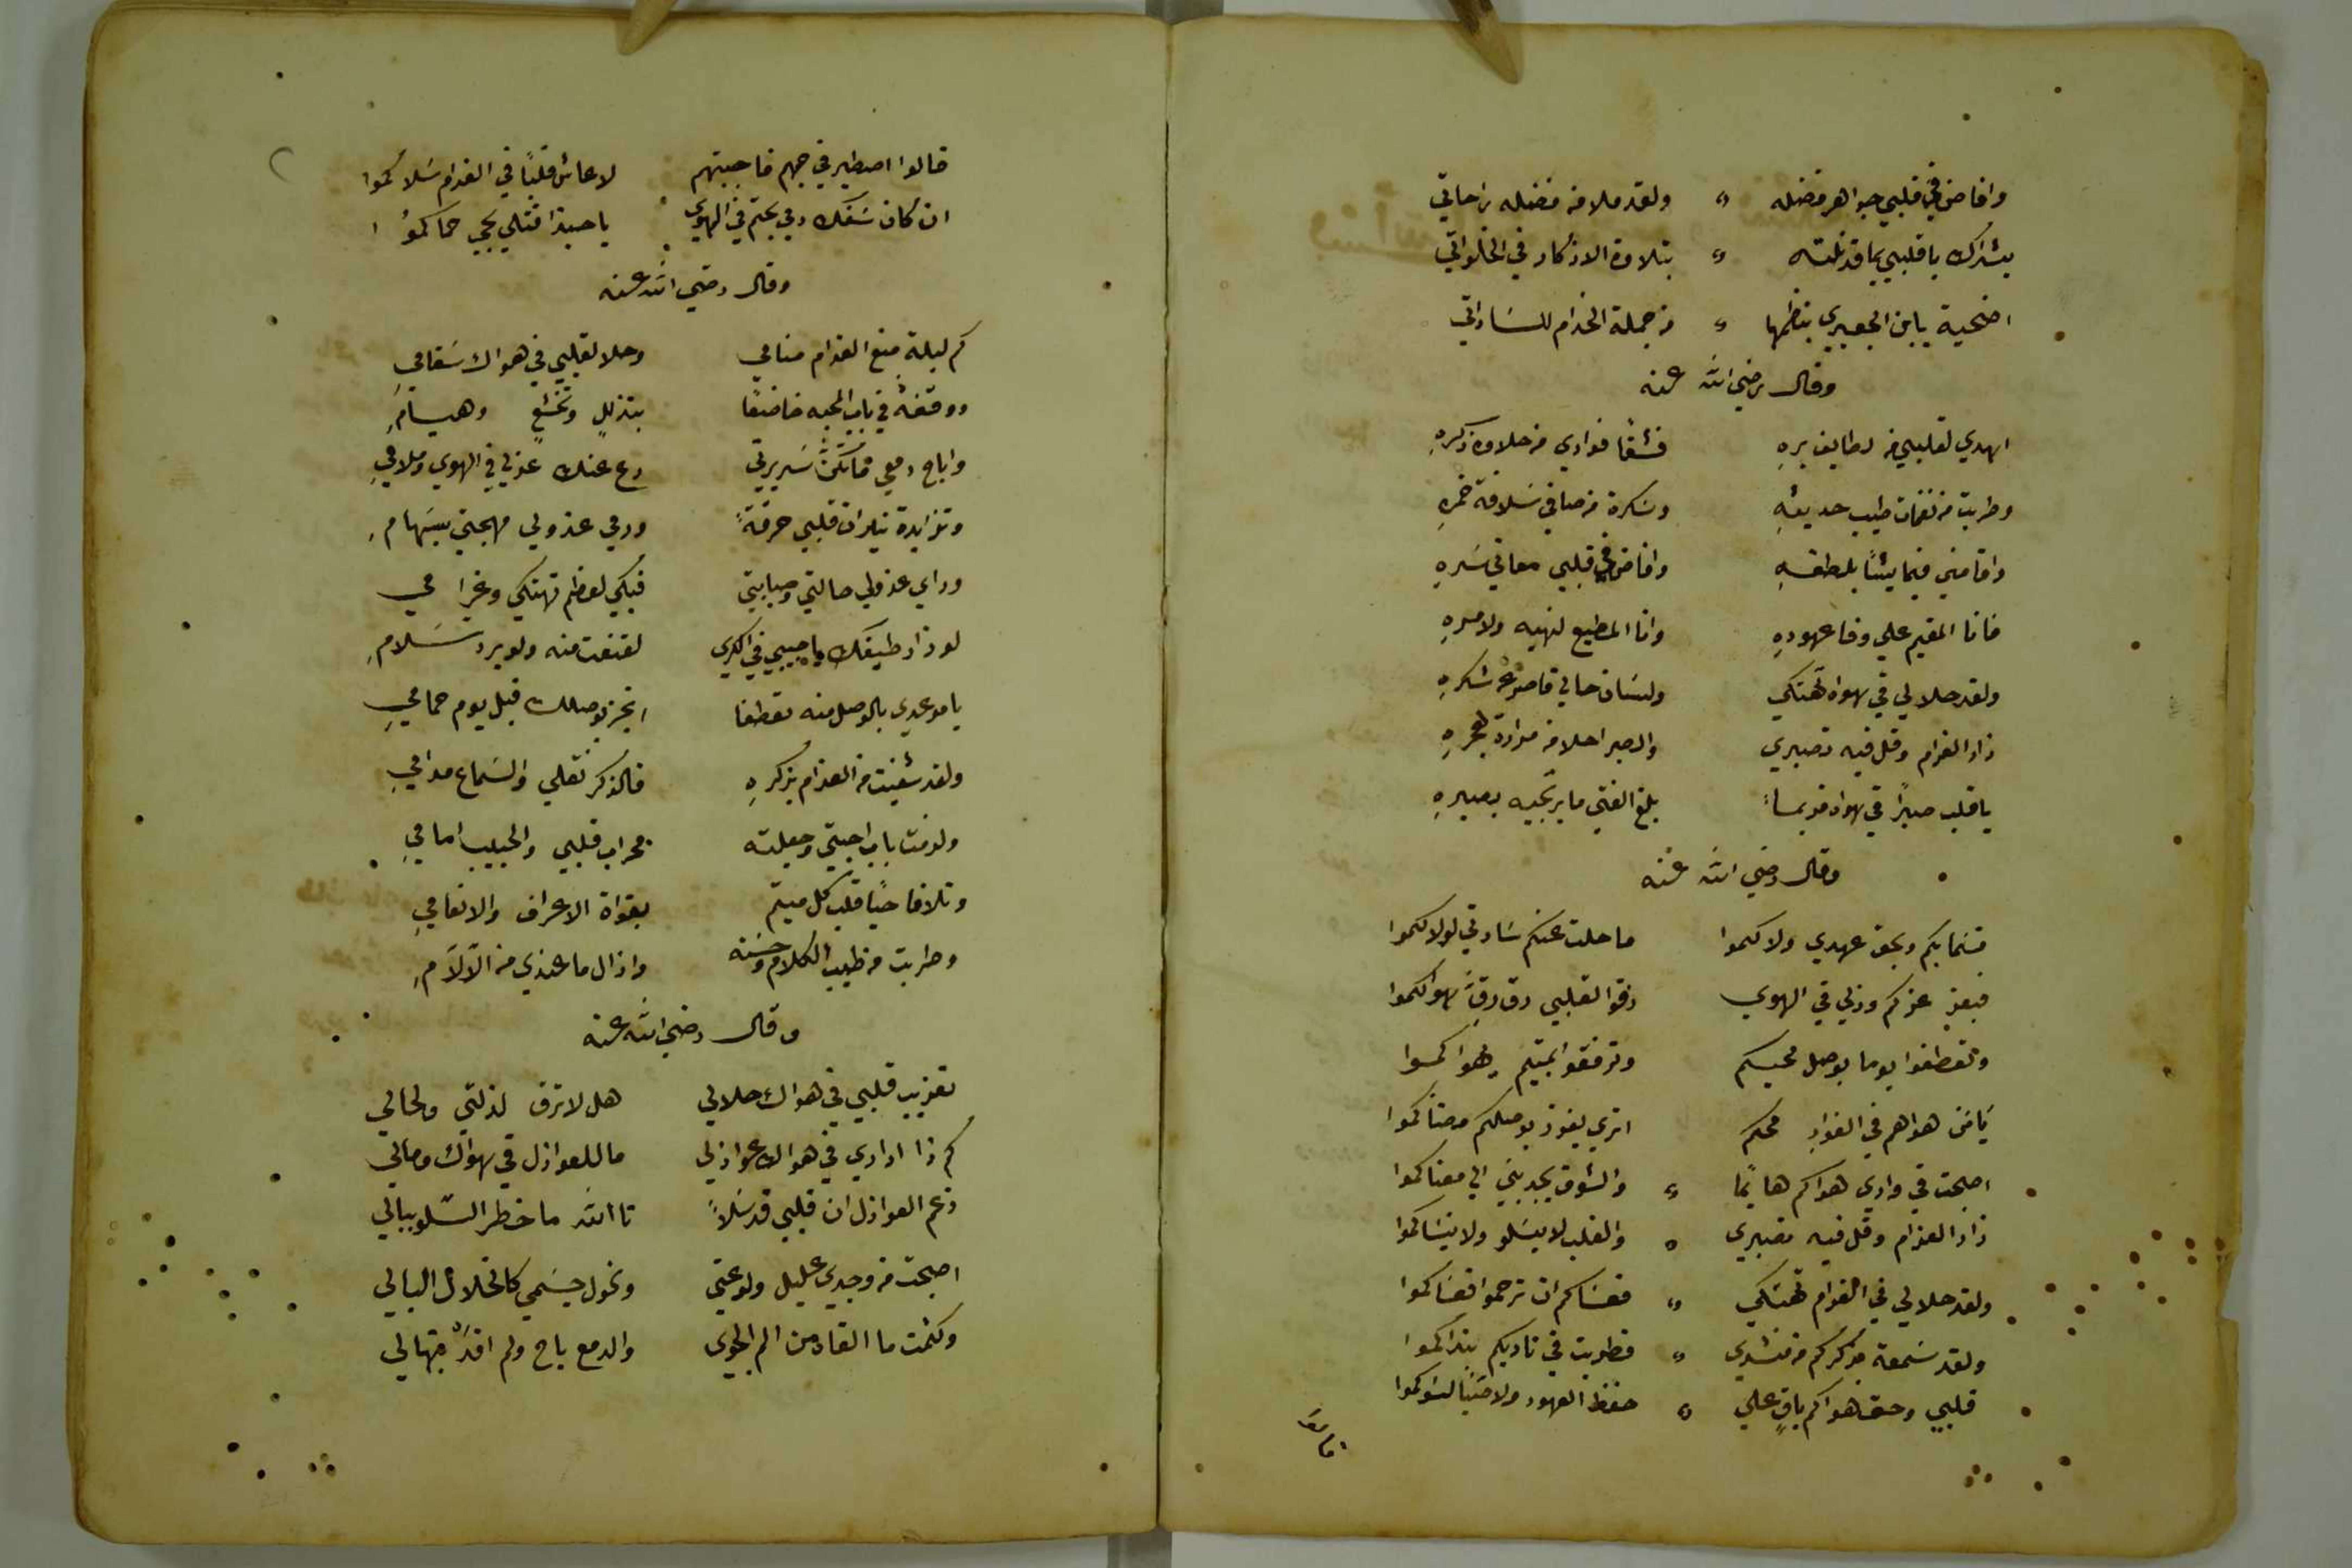 وافاض في قلبي جواهر فضله ولقد ملا من فضله راحاتي
بشراك يا قلبي بما قد نلته بتلاوة الاذكار في الخلواتي
اضحية يابن الجعبري بنظمها من جملة الخدام للساداتي
وقال رضي الله عنه
اهدي لقلبي من لطايف بره فشفا فوادي من حلاوة ذكره
وطربت من نغمات طيب حديثه وسكرة من صافي سلافة خمره
واقامني فيما يشا بلطفه وافاض في قلبي معاني سره
فانا المقيم علي وفا عهوده وانا المطيع لنهيه ولامره
ولقد حلالي في هواه تهتكي ولسان حالي قاصر عن شكره
زاد الغرام وقل فيه تصبري والصبر احلا من مرارة هجره
يا قلب صبرًا في هواه فربما بلغ الفتي ما يرتجيه بصبره
وقال رضي الله عنه
قسما بكم وبحق عهدي ولاكموا ما حلت عنكم سادتي لولاكموا
فبعز عزكم وذلي في الهوي رقوا لقلبي رق رق هواكموا
وتعطفوا يوما بوصل محبكم وترفقوا بمتيم يهواكموا
يا من هواهم في الفواد محكم اتري يفوز بوصلكم مضناكموا
اصبحت في وادي هواكم هايما والشوق يجذبني الي مغناكموا
زاد الغرام وقل فيه تصبري والقلب لا يسلو ولا ينساكموا
ولقد حلالي في الغرام تهتكي فعساكم ان ترحموا فعساكموا
ولقد سمعة بذكركم من منشدي فطربت في ناديكم بنداكموا
قلبي وحق هواكم باق علي حفظ العهود ولا صبا لسواكموا
قالوا اصطبر في حبهم فاجبتهم لا عاش قلبًا في الغرام سلاكموا
ان كان سفك دمي بحبكم في الهوي يا حبذا قتلي بحي حماكموا
وقال رضي الله عنه
كم ليلة منع الغرام منامي وحلا لقلبي في هواك سقامي
ووقفة في باب المحبه خاضعا بتذللٍ وتخشعٍ وهيام
واباح دمعي ما تكن سريرتي دع عنك عذلي في الهوي وملامي
وتزايدة نيران قلبي حرقةً ورمي عذولي مهجتي بسهام
وراي عذولي حالتي وصبابتي فبكي لعظم تهتكي وغرامي
لو زار طيفك يا حبيبي في الكري لقنعت منه ولو برد سلام
يا موعدي بالوصل منه تعطفا انجز بوصلك قبل يوم حمامي
ولقد شفيت من الغرام بذكره فالذكر نقلي والسماع مدامي
ولزمت باب احبتي وجعلته محراب قلبي والحبيب امامي
وتلافا حيا قلب كل متيم بقواة الاعراف والانعامي
وطربت من طيب الكلام وحسنه وازال ما عندي من الآلام
وقال رضي الله عنه
تعذيب قلبي في هواك حلالي هل لا ترق لذلتي ولحالي
كم ذا اداري في هواك عواذلي ما للعواذل في هواك ومالي
زعم العواذل ان قلبي قد سلا تا الله ما خطر السلو ببالي
اصبحت من وجدي عليل ولوعتي ونحول جسمي كالخلال البالي
وكتمت ما القاه من الم الجوي والدمع باح ولم